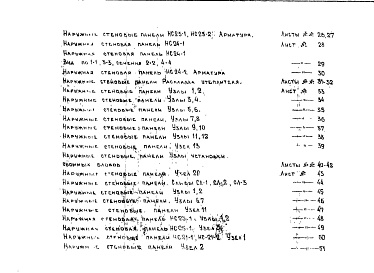 Наружные стеновые панели НС23-1, НС23-2. Арматура. Листы №№ 26,27
Наружная стеновая панель НС24-1 Лист № 28
Наружная стеновая панель НС24-1
Вид по 1-1, 3-3, сечения 2-2, 4-4 —"— 29
Наружная стеновая панель НС24-1. Арматура —"— 30
Наружные стеновые панели Раскладка утеплителя. Листы № 31-32
Наружные стеновые панели Узлы 1,2, Лист № 33
Наружные стеновые панели. Узлы 3,4. —"— 34
Наружные стеновые панели. Узлы 5,6. —"— 35
Наружные стеновые панели. Узлы 7,8 —"— 36
Наружные стеновые панели. Узлы 9,10 —"— 37
Наружные стеновые панели Узлы 11,12 —"— 38
Наружные стеновые панели. Узел 13 —"— 39
Наружные стеновые панели Узлы установки
оконных блоков Листы №№ 40-42
Наружные стеновые панели Узел 20 Лист № 43
Наружные стеновые панели. 44
Наружные стеновые панели Узлы 1,2 —"— 45
Наружные стеновые панели. Узлы 6,7 —"— 46
Наружные стеновые панели Узел 11 —"— 47
Наружная стеновая панель НС23-1. Узлы 1,2 —"— 48
Наружная стеновая панель НС25-1. Узел —"— 49
Наружные стеновые панели Узел 1 —"— 50
Наружные стеновые панели Узел 2 —"— 51